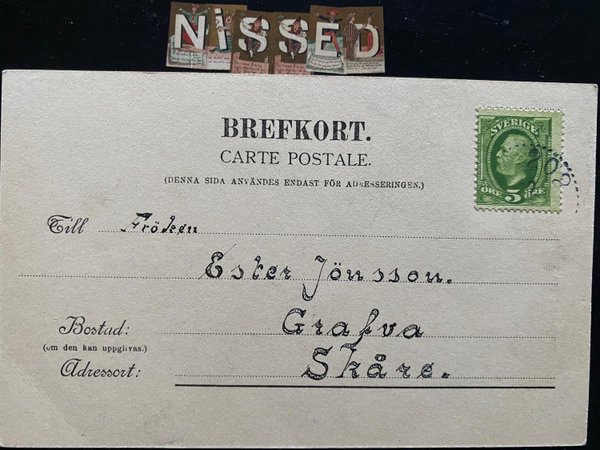 NiSSED
BREFKORT.
CARTE POSTALE.
(DENNA SIDA ANVÄNDES ENDAST FÖR ADRESSERINGEN.)
SVERIGE
ÖRE 5 ÖRE
Till Fröken
Ester Jönsson.
Bostad: Grafva
(om den kan uppgifvas.)
Adressort: Skåre.